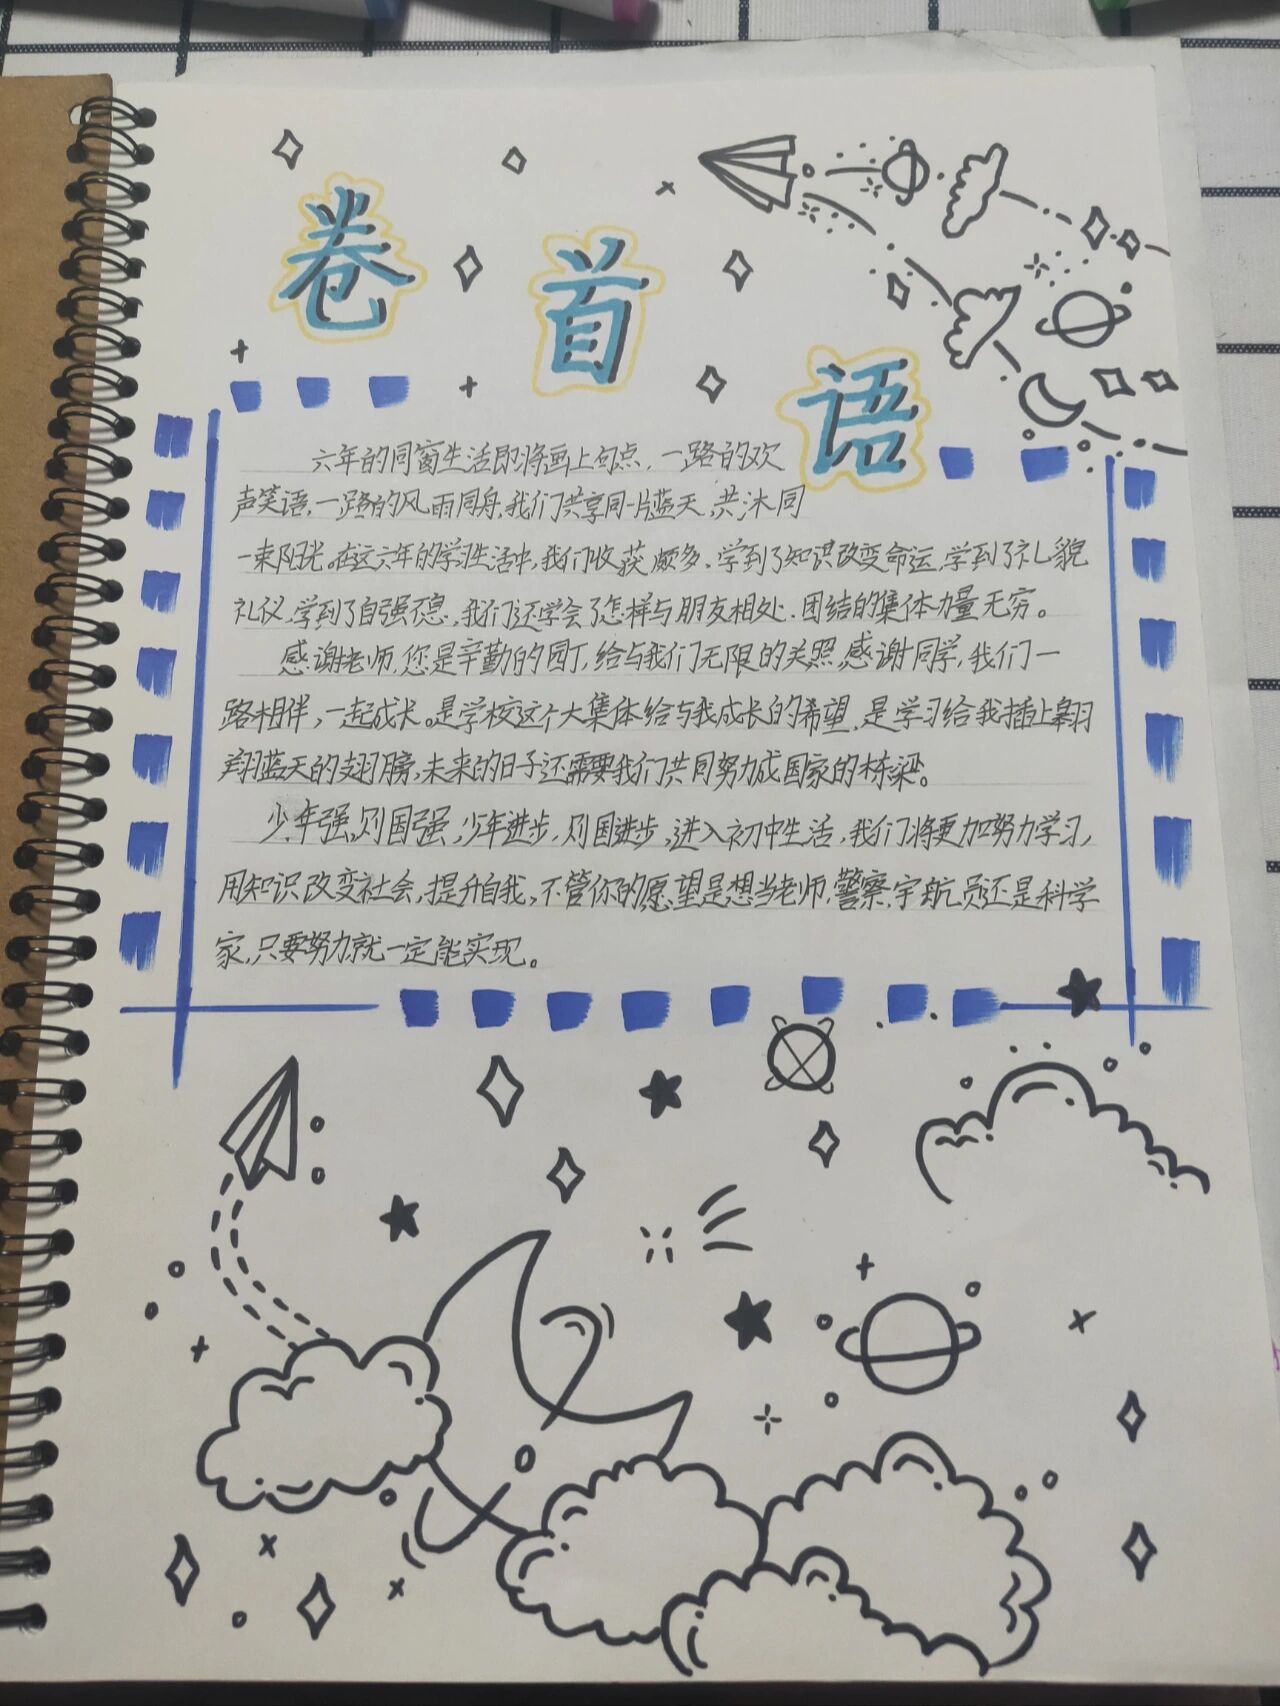 卷首语
六年的同窗生活即将画上句点，一路的欢
声笑语，一路的风雨同舟，我们共享同一片蓝天，共沐同
一束阳光。在这六年的学习生活中，我们收获颇多，学到了知识改变命运，学到了礼貌
礼仪，学到了自强不息，我们还学会了怎样与朋友相处，团结的集体力量无穷。
感谢老师，您是辛勤的园丁，给与我们无限的关照，感谢同学，我们一
路相伴，一起成长。是学校这个大集体给与我成长的希望，是学习给我插上翱
翔蓝天的翅膀，未来的日子还需要我们共同努力成国家的栋梁。
少年强，则国强，少年进步，则国进步，进入初中生活，我们将更加努力学习，
用知识改变社会，提升自我，不管你的愿望是想当老师，警察，宇航员还是科学
家，只要努力，就一定能实现。